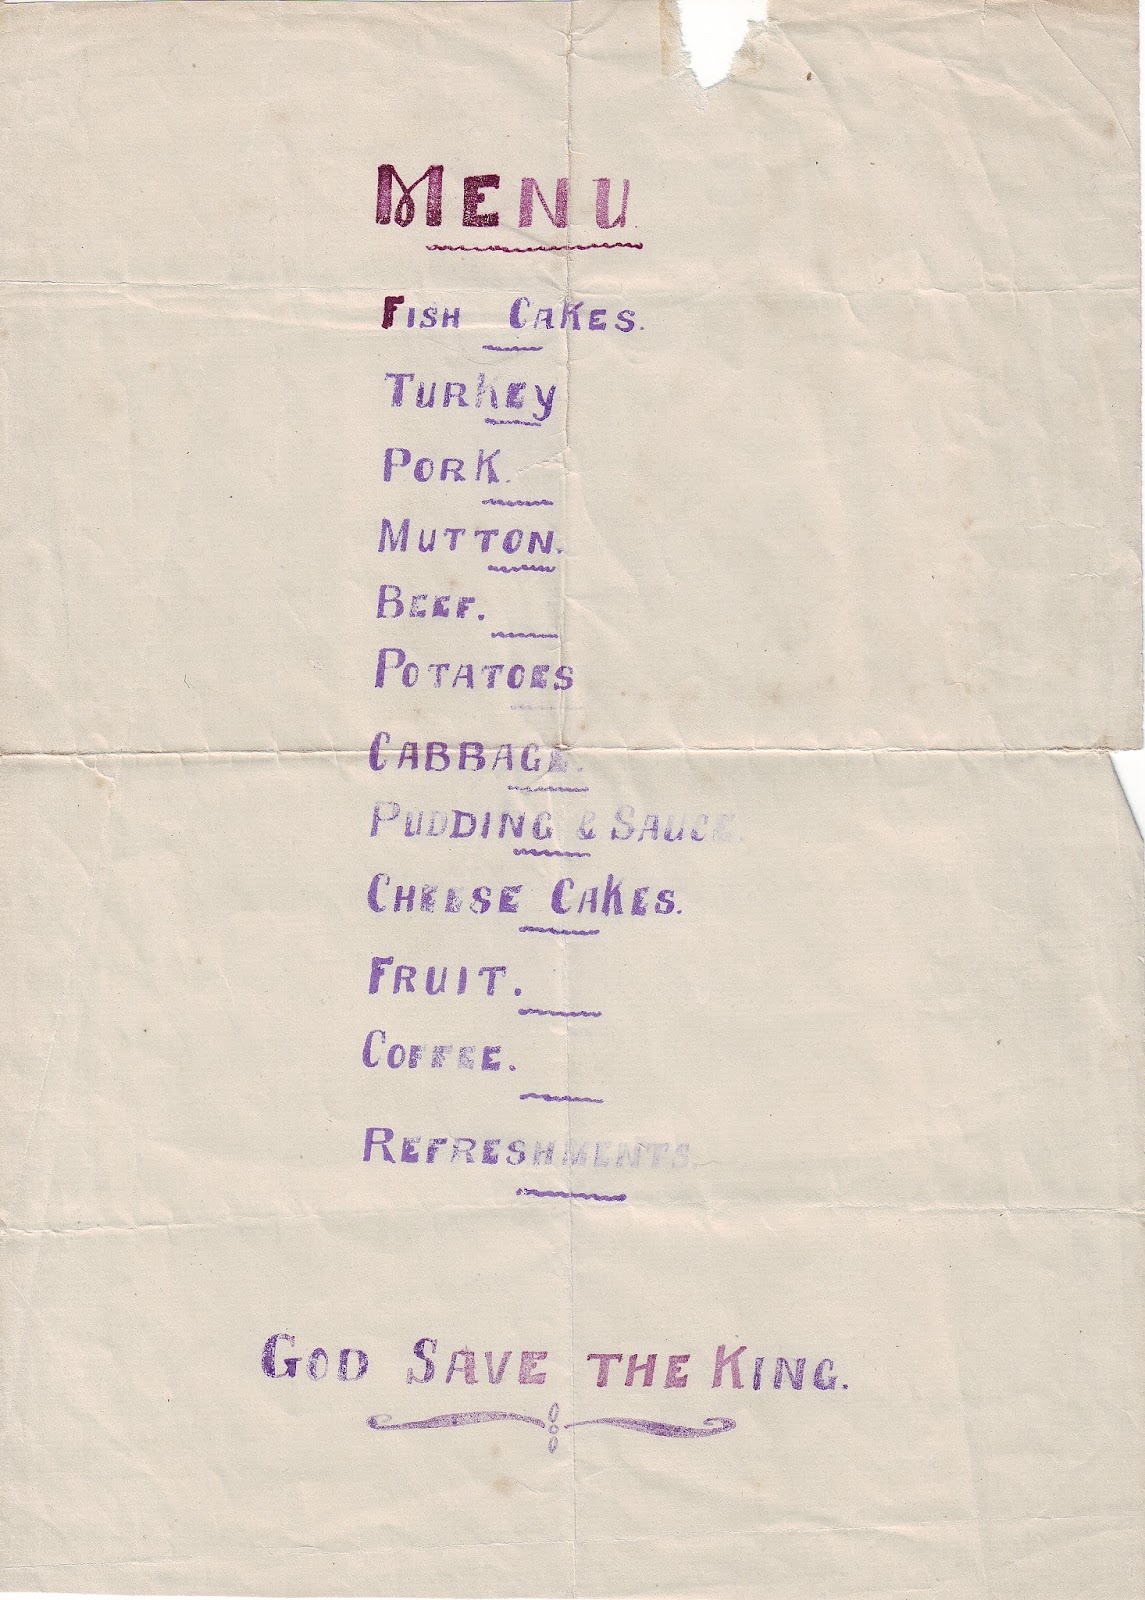 MENU.
FISH CAKES.
TURKEY
PORK.
MUTTON.
BEEF.
POTATOES
CABBAGE.
PUDDING & SAUCE.
CHEESE CAKES.
FRUIT.
COFFEE.
REFRESHMENTS.
GOD SAVE THE KING.